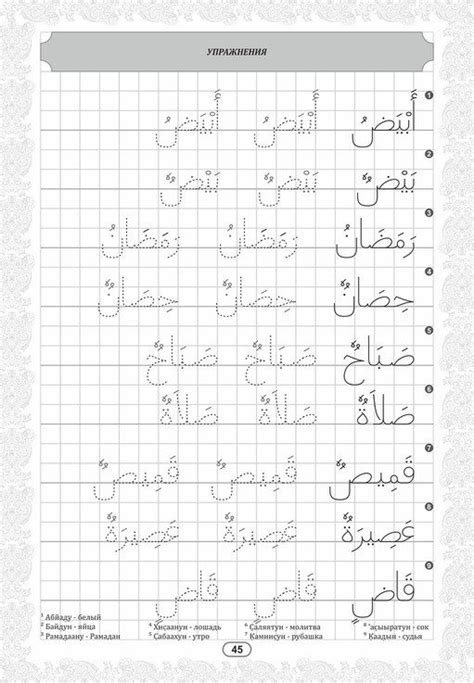 УПРАЖНЕНИЯ
1 أَبْيَضُ أَبْيَضُ أَبْيَضُ
2 بَيْضٌ بَيْضٌ بَيْضٌ
3 رَمَضَانُ رَمَضَانُ رَمَضَانُ
4 حِصَانٌ حِصَانٌ حِصَانٌ
5 صَبَاحٌ صَبَاحٌ صَبَاحٌ
6 صَلاَةٌ صَلاَةٌ صَلاَةٌ
7 قَمِيصٌ قَمِيصٌ قَمِيصٌ
8 عَصِيرَةٌ عَصِيرَةٌ عَصِيرَةٌ
9 قَاضٍ قَاضٍ قَاضٍ
1 Абйаду - белый
2 Байдун - яйца
3 Рамадаану - Рамадан
4 Хиҫаанун - лошадь
5 Ҫабаахун - утро
6 Ҫаляятун - молитва
7 Камииҫун - рубашка
8 'аҫыыратун - сок
9 Каадын - судья
45